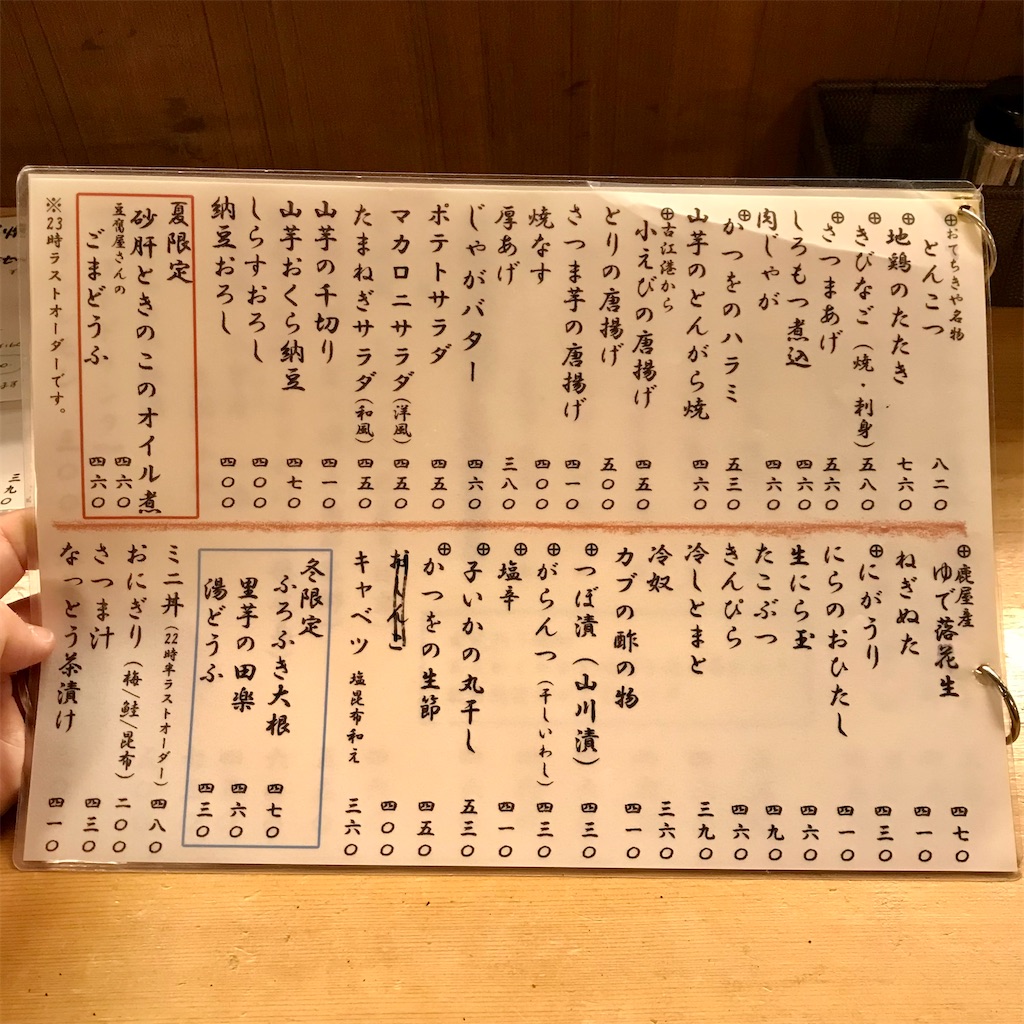 ⊕おてちきや名物
とんこつ 八二〇
⊕地鶏のたたき 七六〇
⊕きびなご（焼・刺身） 五八〇
⊕さつまあげ 五六〇
しろもつ煮込 四六〇
肉じゃが 四六〇
⊕かつをのハラミ 五三〇
山芋のとんがら焼 四六〇
⊕古江港から
小えびの唐揚げ 四五〇
とりの唐揚げ 五〇〇
さつま芋の唐揚げ 四一〇
焼なす 四〇〇
厚あげ 三八〇
じゃがバター 四六〇
ポテトサラダ 四五〇
マカロニサラダ（洋風） 四五〇
たまねぎサラダ（和風） 四五〇
山芋の千切り 四一〇
山芋おくら納豆 四七〇
しらすおろし 四〇〇
納豆おろし 四〇〇
夏限定
砂肝ときのこのオイル煮 四六〇
豆腐屋さんの
ごまどうふ 四六〇
※23時ラストオーダーです。
⊕鹿屋産
ゆで落花生 四七〇
ねぎぬた 四一〇
⊕にがうり 四三〇
にらのおひたし 四一〇
生にら玉 四六〇
たこぶつ 四九〇
きんぴら 四六〇
冷しとまと 三九〇
冷奴 三六〇
カブの酢の物 四一〇
⊕つぼ漬（山川漬） 四三〇
⊕がらんつ（干しいわし） 四三〇
⊕塩辛 四一〇
⊕子いかの丸干し 五三〇
⊕かつをの生節 四五〇
四〇〇
キャベツ 塩昆布和え 三六〇
冬限定
ふろふき大根 四七〇
里芋の田楽 四六〇
湯どうふ 四三〇
ミニ丼（22時半ラストオーダー） 四八〇
おにぎり（梅/鮭/昆布） 二〇〇
さつま汁 四三〇
なっとう茶漬け 四一〇